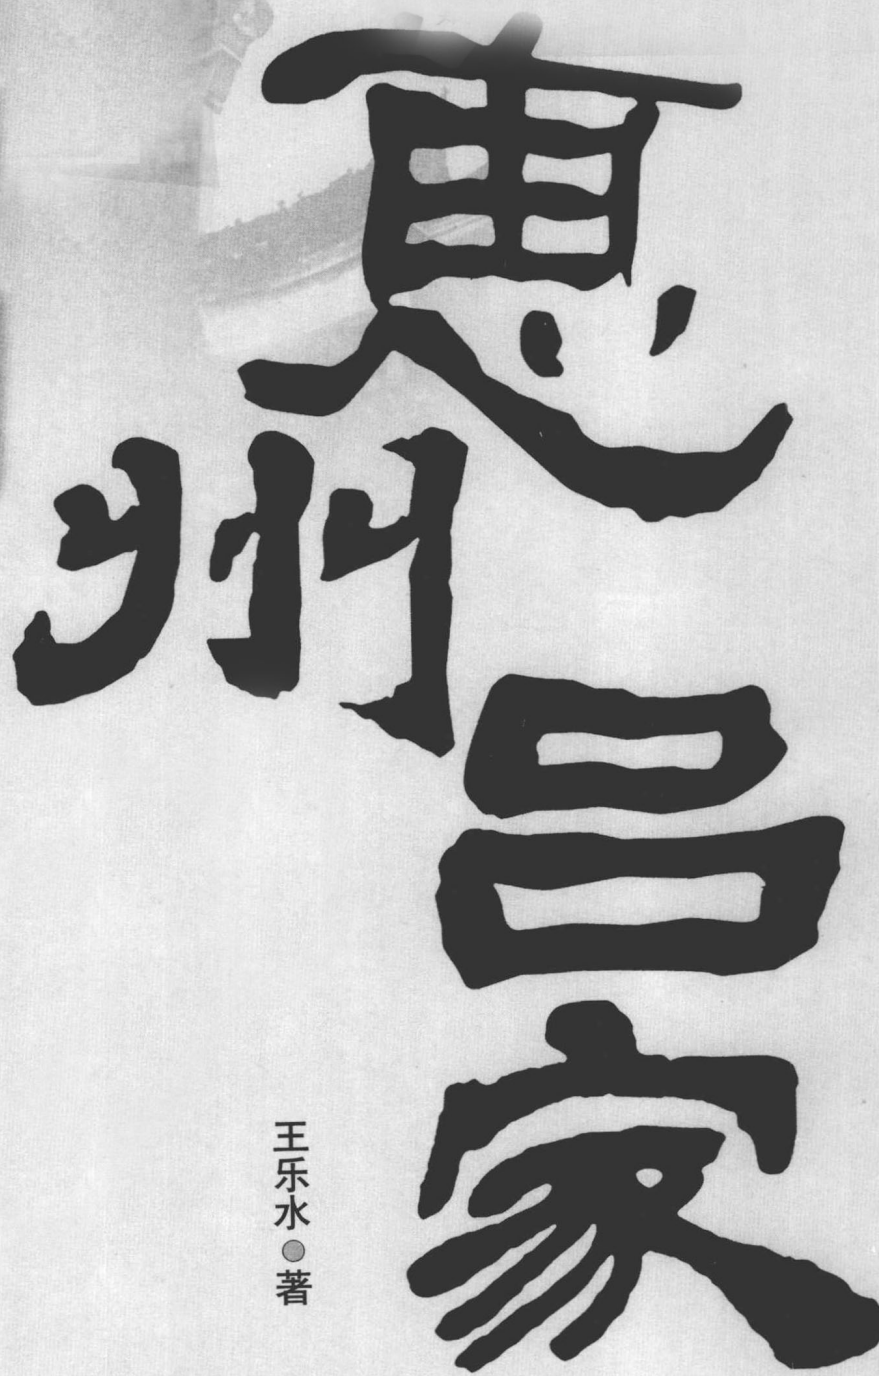 惠州
吕家
王乐水●著